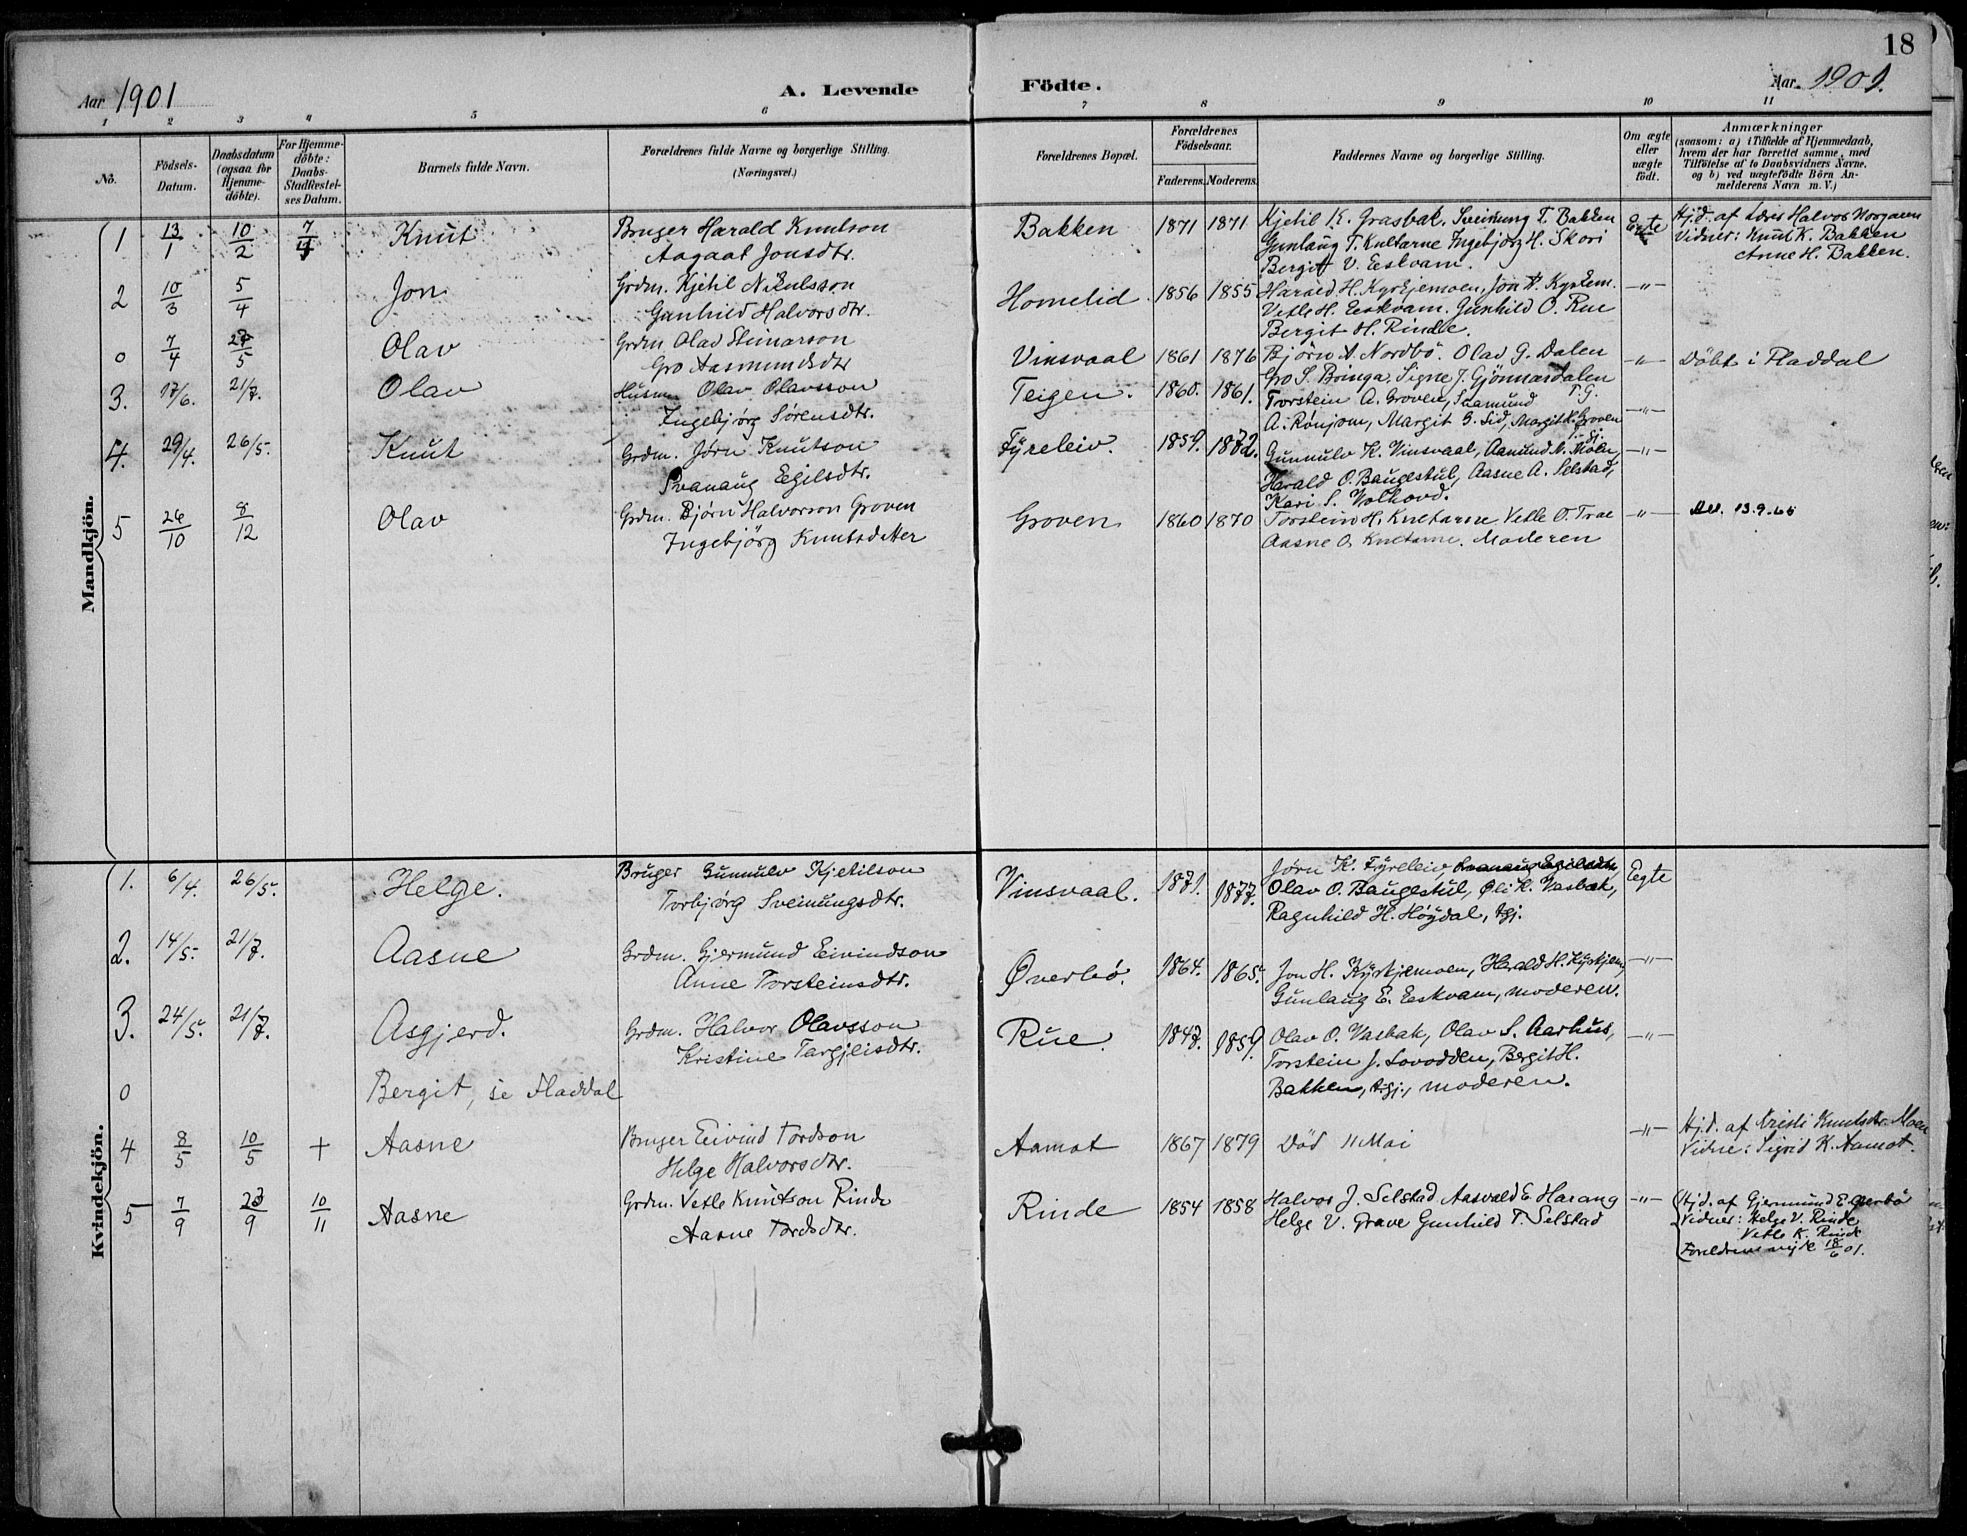 18
Aar 1901 A. Levende Födte. Aar 1901.
1 2 3 4 5 6 7 8 9 10 11
No. Födsels-Datum. Daabsdatum (ogsaa for Hjemme-döbte). For Hjemme-döbte: Daabs-Stadfæstel-ses Datum. Barnets fulde Navn. Forældrenes fulde Navne og borgerlige Stilling. (Næringsvei.) Forældrenes Bopæl. Forældrenes Födselsaar. Faderens. Moderens. Faddernes Navne og borgerlige Stilling. Om ægte eller uægte födt. Anmærkninger (saasom: a) i Tilfælde af Hjemmedaab, hvem der har forrettet samme, med Tilföielse af to Daabsvidners Navne, og b) ved uægtefödte Börn An-melderens Navn m. V.)
Mandkjön.
1 13/1 10/2 7/4 Knut Bruger Harald Knutson Bakken 1871 1871 Kjetil K. Grasbak. Sveinung T. Bakken Egte Hj.d. af Lærer Halvor Norgaren
Aagaat Jonsdtr. Gunlaug T. Kultarne Ingebjörg H. Skori Vidner: Knut K. Bakken
Bergit V. Eeskvam. Anne H. Bakken.
2 10/3 5/4 Jon Grdm. Kjetil Nikulsson Homelid 1856 1855 Harald H. Kyrkjemoen, Jon H. Kyrkjem. -"-
Gunhild Halvorsdtr. Vetle H. Eeskvam. Gunhild O. Rue
Bergit H. Rinde.
0 7/4 27/5 Olav Grdm Olav Steinarson Vinsvaal 1861 1876 Bjørn A. Nordbö. Olav G. Dalen -"- Döbt i Fladdal
Gro Aasmundsdtr Gro S. Bringa. Signe J. Gjönnardalen
3. 17/6. 21/7. Olav Husm. Olav Olavsson Teigen. 1860. 1861. Torstein A. Groven, Saamund T.G. -"-
Ingebjørg Sørensdtr. A. Rønjom, Margit G. Lid, Margit K. Groven
4. 29/4. 26/5. Knut Grdm. Jørn Knutson Fyreleiv. 1859. 1872. Gunnulv K. Vinsvaal, Aamund N. Moen, -"-
Svanaug Egilsdtr. Harald O. Baugestul, Aasne A. Selstad,
Kari S. Volkovd.
5 26/10 8/12 Olav Grdm. Bjørn Halvorson Groven Groven 1860 1870 Torstein H. Kultarne. Vetle O. Trae -"- Att. 13.9.65
Ingebjörg Knutsdatter Aasne O. Kultarne. Moderen
Kvindekjön.
1. 6/4. 26/5. Helge. Bruger Gunnulv Kjetilson Vinsvaal. 1871. 1877. Jørn K. Fyreleiv Svanaug Egilsdtr, Egte
Torbjørg Sveinungsdtr. Olav O. Baugestul, Øli K. Vasbak,
Ragnhild H. Høydal, tgj.
2. 14/5. 21/7. Aasne Grdm. Gjermund Eivindson Øverbø. 1864. 1865. Jon H. Kyrkjemoen, Harald H. Kyrkjem, -"-
Anne Torsteinsdtr. Gunlaug E. Eeskvam, moderen.
3. 24/5. 21/7. Asgjerd. Grdm. Halvor Olavsson Rue. 1847. 1859. Olav O. Vasbak, Olav S. Aarhus, -"-
Kristine Targjeisdtr. Torstein J. Lovodden, Bergit H.
Bakken, tgj., moderen.
0 Bergit, se Fladdal
4 8/5 10/5 + Aasne Bruger Eivind Tordson Aamot 1867 1879 Död 11 Mai -"- Hj.d. af Kristi Knutsdtr. Moen
Helge Halvorsdtr. Vidne: Sigrid K. Aamot.
5 7/9 23/9 10/11 Aasne Grdm. Vetle Knutson Rinde Rinde 1854 1858 Halvor J. Selstad Aasvald E. Harang -"- Hj.d. af Gjermund E. Øverbö
Aasne Tordsdtr. Helge V. Grave Gunhild T. Selstad Vidner: Helge V. Rinde
Vetle K. Rinde
18/6 01.